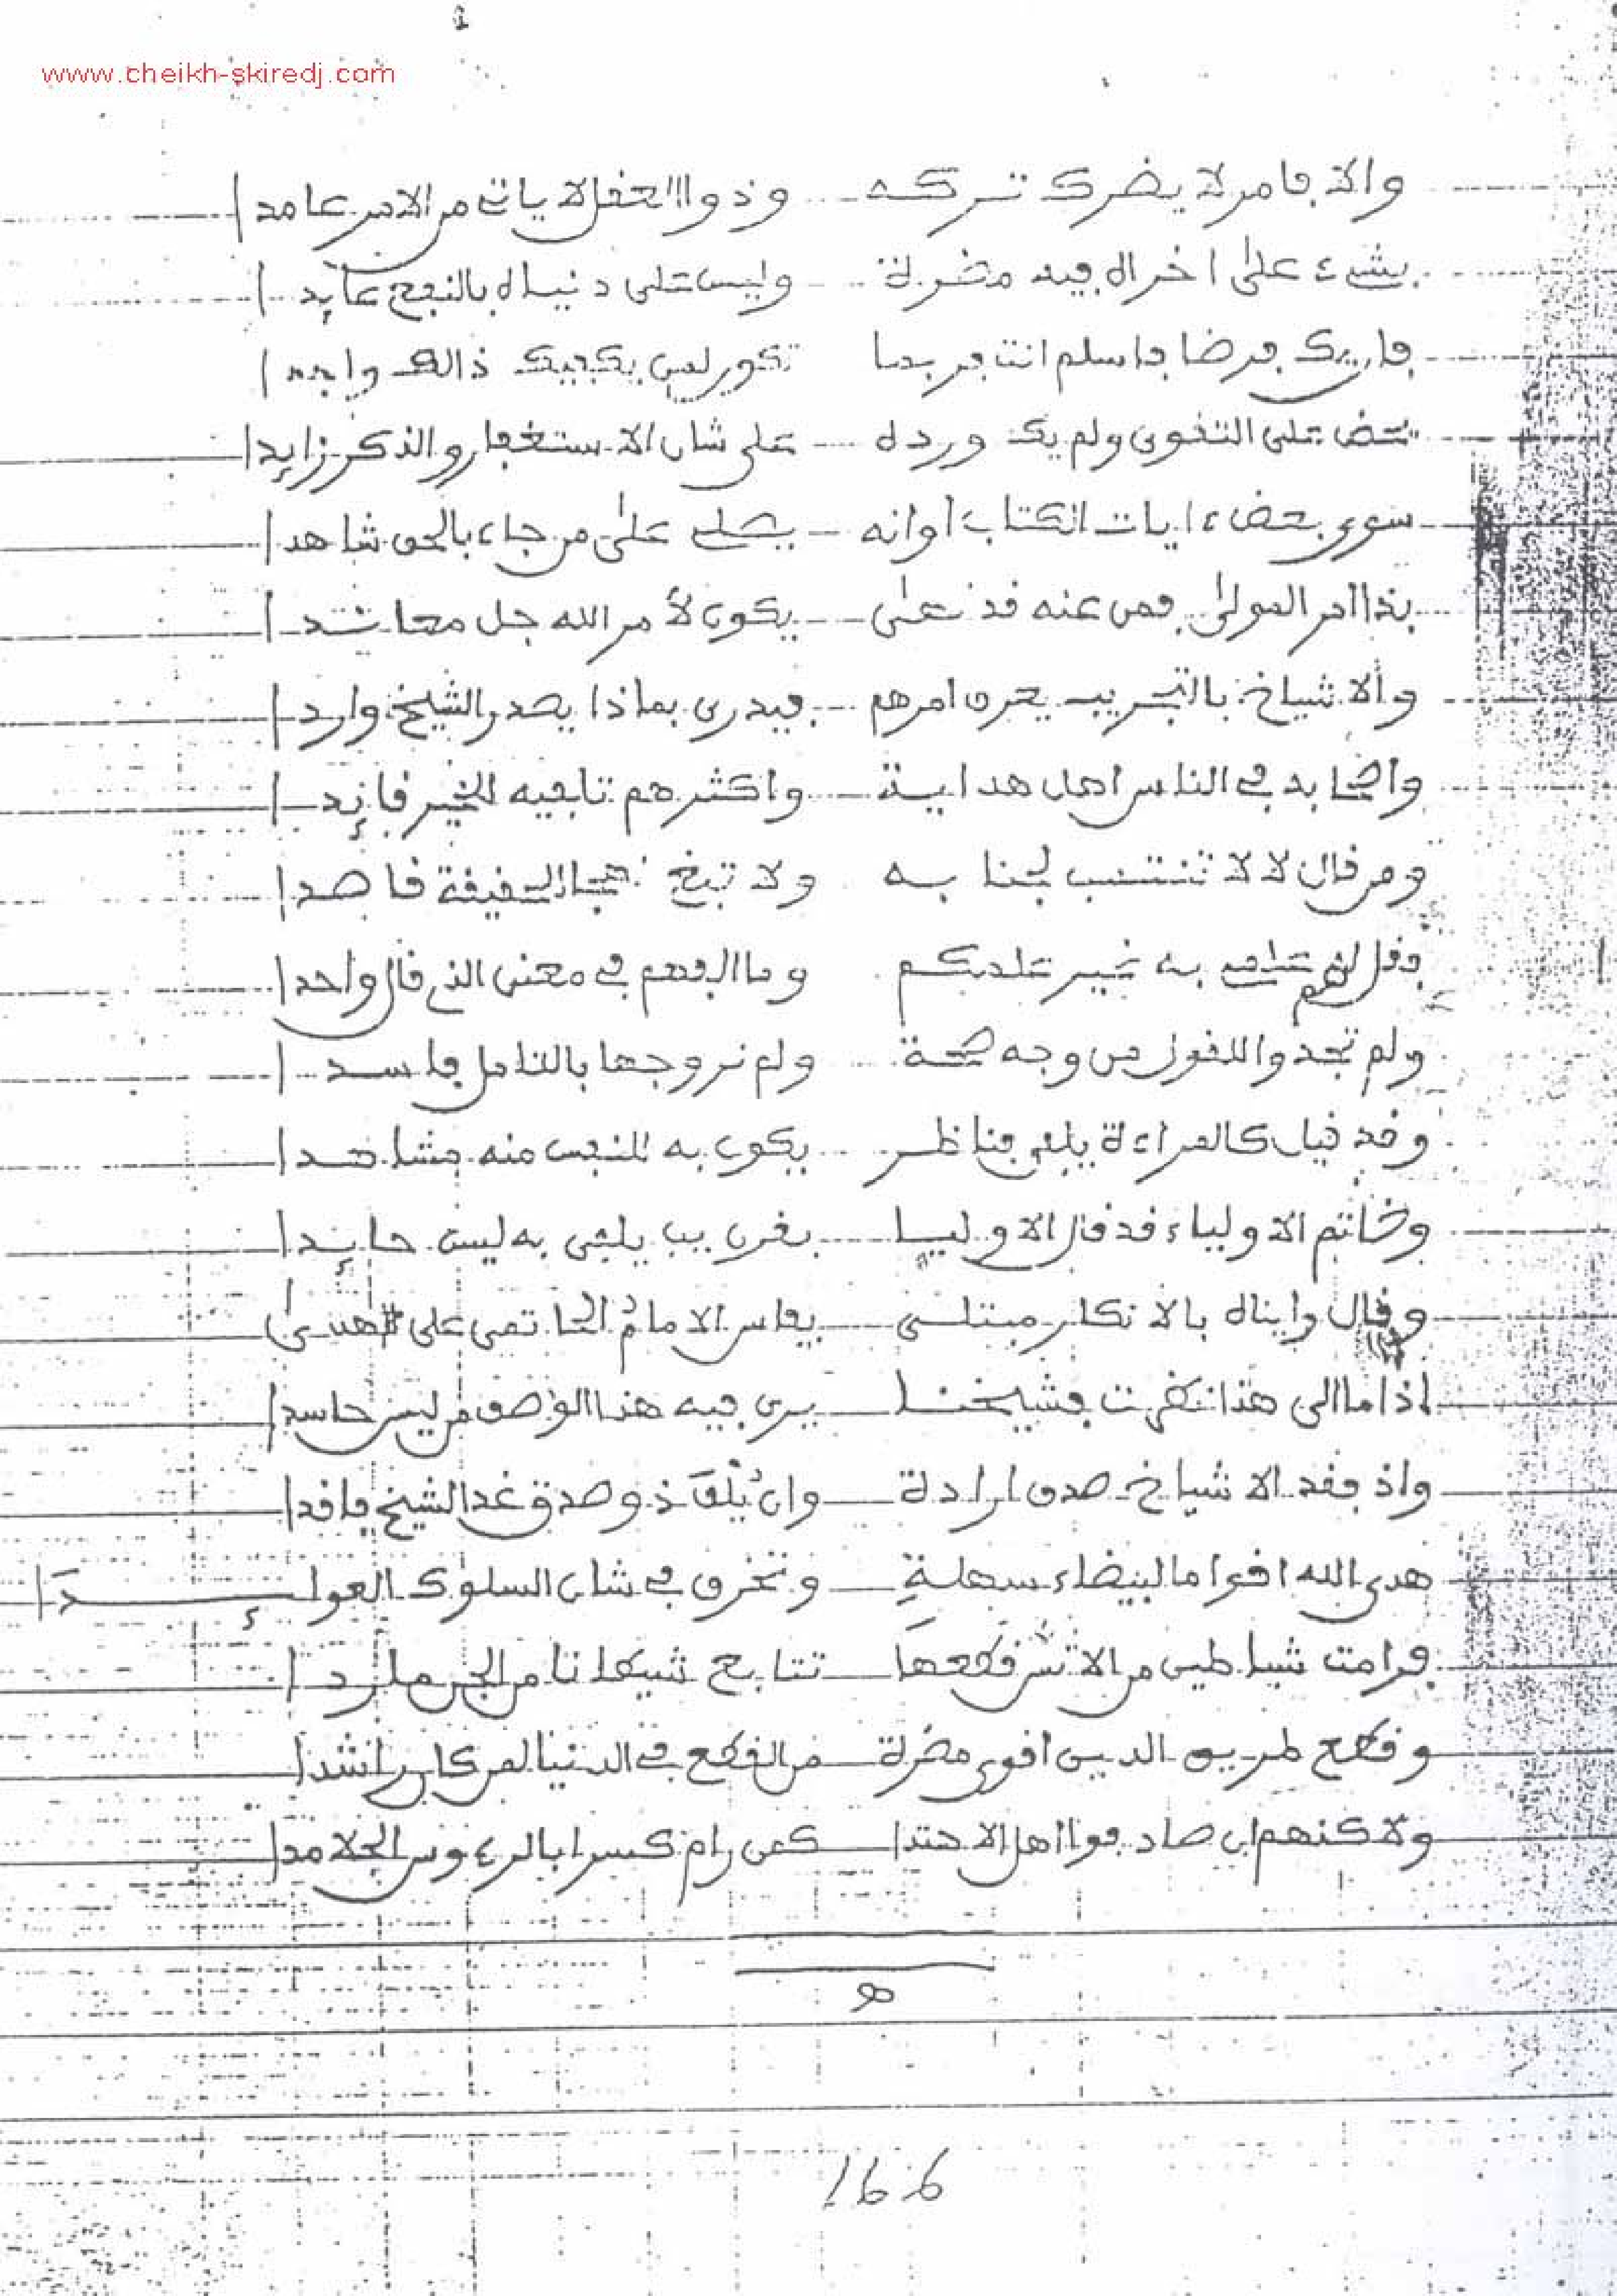 www.cheikh-skiredj.com
والا فامر لا يضرك تركه وذو العقل لا ياتي من الامر عامدا
بشيء على اخراه فيه مضرة وليس على دنياه بالنفع عايدا
فاسلم انت من ذالك واجدا
على التقوى ولم يك ورده على شان الاستغفار والذكر زايدا
سوى بعض ءايات الكتاب اوانه يصلي على من جاء بالحق شاهدا
بذا امر المولى فمن عنه قد يكون لأمر الله جل معاندا
والاشياخ بالتجريب يعرف امرهم فيدرى بماذا يصدر الشيخ واردا
واصحابه في الناس اهل هداية واكثرهم تابعيه للخير قائدا
ومن قال لا لا تنتسب لجنابه ولا تبغ الحقيقة قاصدا
فقل به غير علمكم وما الفهم في معنى الذي قال واحدا
ولم تجدوا للقول من وجه صحة ولم نر وجها بالتامل فاسدا
وقد قيل كالمراءة يلفى مناظر يكون به للنفس منه مشاهدا
وخاتم الاولياء قد قال الاوليا بغرب يلفى به ليس حائدا
وقال رايناه بالانكار مبتلى الامام الحاتمي على الهدى
اذا ما الى هذا نظرت فشيخنا يرى فيه هذا الوصف من ليس حاسدا
واذ فقد الاشياخ صدق ارادة وان يُلْفَ ذو صدق غدا الشيخ فاقدا
هدى الله اقواما لبيضاء سهلةٍ وتخرق في شان السلوك العوائدَا
فرامت شياطين من الانس قطعهَا تتابع شيطانا من الجن ماردا
وقطع طريق الدين اقوى مضرة من القطع في الدنيا لمن كان راشدا
ولاكنهم ان صادفوا اهل الاهتدا كمن رام كسرا بالرءوس الجلامدا
هـ
166